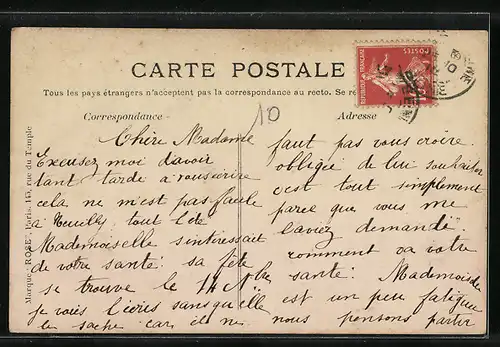 CARTE POSTALE
Tous les pays étrangers n'acceptent pas la correspondance au recto. Se re
Correspondance
Adresse
10
POSTES
REPUBLIQUE FRANÇAISE
Marque "ROSE", Paris, 145, rue du Temple
Chère Madame
Excusez moi davoir
tant tardé à vous écrire
cela ne m'est pas facile
à Neuilly tout l'été
Mademoiselle sintéressait
de votre santé sa fête
se trouve le 14 9bre
je vous l'écris sans quelle
le sache car il ne
faut pas vous croire
obligée de lui souhaiter
cest tout simplement
parce que vous me
laviez demandé
comment va votre
santé. Mademoise
est un peu fatiguée
nous pensons partir